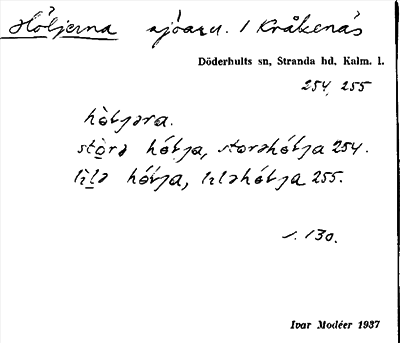 Höljerna sjöar u. / Kråkenäs
Döderhults sn, Stranda hd, Kalm. l.
254, 255
stòrə hóɫja, storəhóɫja 254.
lìlə hóɫja, lıləhóɫja 255.
s. 130.
Ivar Modéer 1937